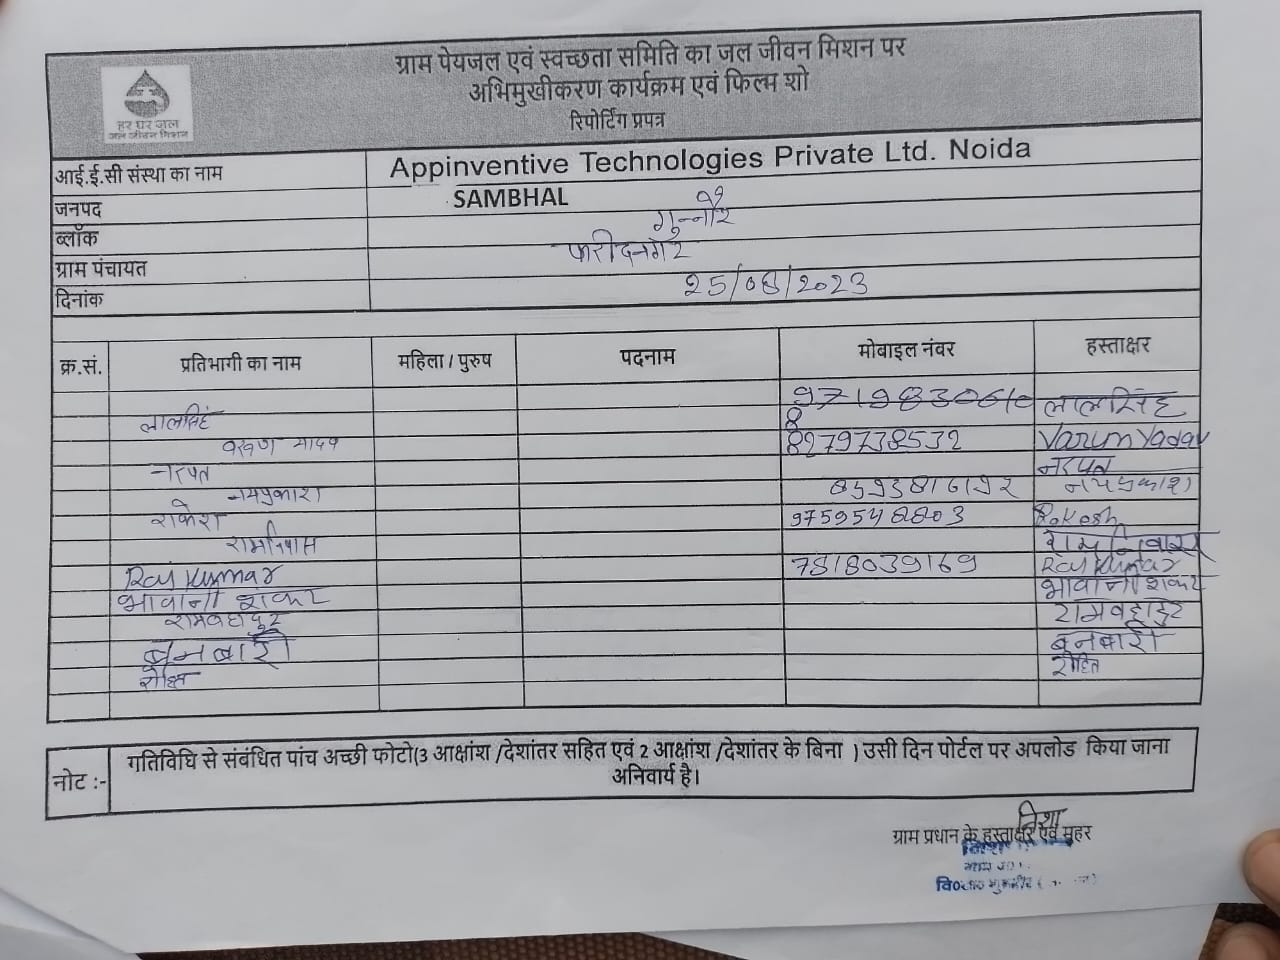 ग्राम पेयजल एवं स्वच्छता समिति का जल जीवन मिशन पर
अभिमुखीकरण कार्यक्रम एवं फिल्म शो
रिपोर्टिंग प्रपत्र
हर घर जल
जल जीवन मिशन
आई.ई.सी संस्था का नाम Appinventive Technologies Private Ltd. Noida
जनपद SAMBHAL
ब्लॉक गुन्नौर
ग्राम पंचायत फरीदनगर
दिनांक 25/08/2023
क्र.सं. प्रतिभागी का नाम महिला / पुरुष पदनाम मोबाइल नंबर हस्ताक्षर
लालसिंह लालसिंह
वरुण यादव 8279738532 Varun Yadav
नरपत नरपत
राकेश 9759548803 Rakesh
रामनिवास रामनिवास
Raj Kumar 7818039169 Raj Kumar
भावानी शंकर भावानी शंकर
रामवहादुर रामवहादुर
बनबारी बनबारी
रोहित रोहित
नोट :- गतिविधि से संबंधित पांच अच्छी फोटो(3 आक्षांश /देशांतर सहित एवं 2 आक्षांश /देशांतर के बिना ) उसी दिन पोर्टल पर अपलोड किया जाना
अनिवार्य है।
निशा
ग्राम प्रधान के हस्ताक्षर एवं मुहर